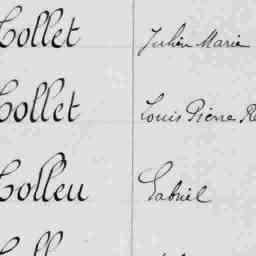 Collet Julien Marie
Collet Louis Pierre Re
Colleu Gabriel